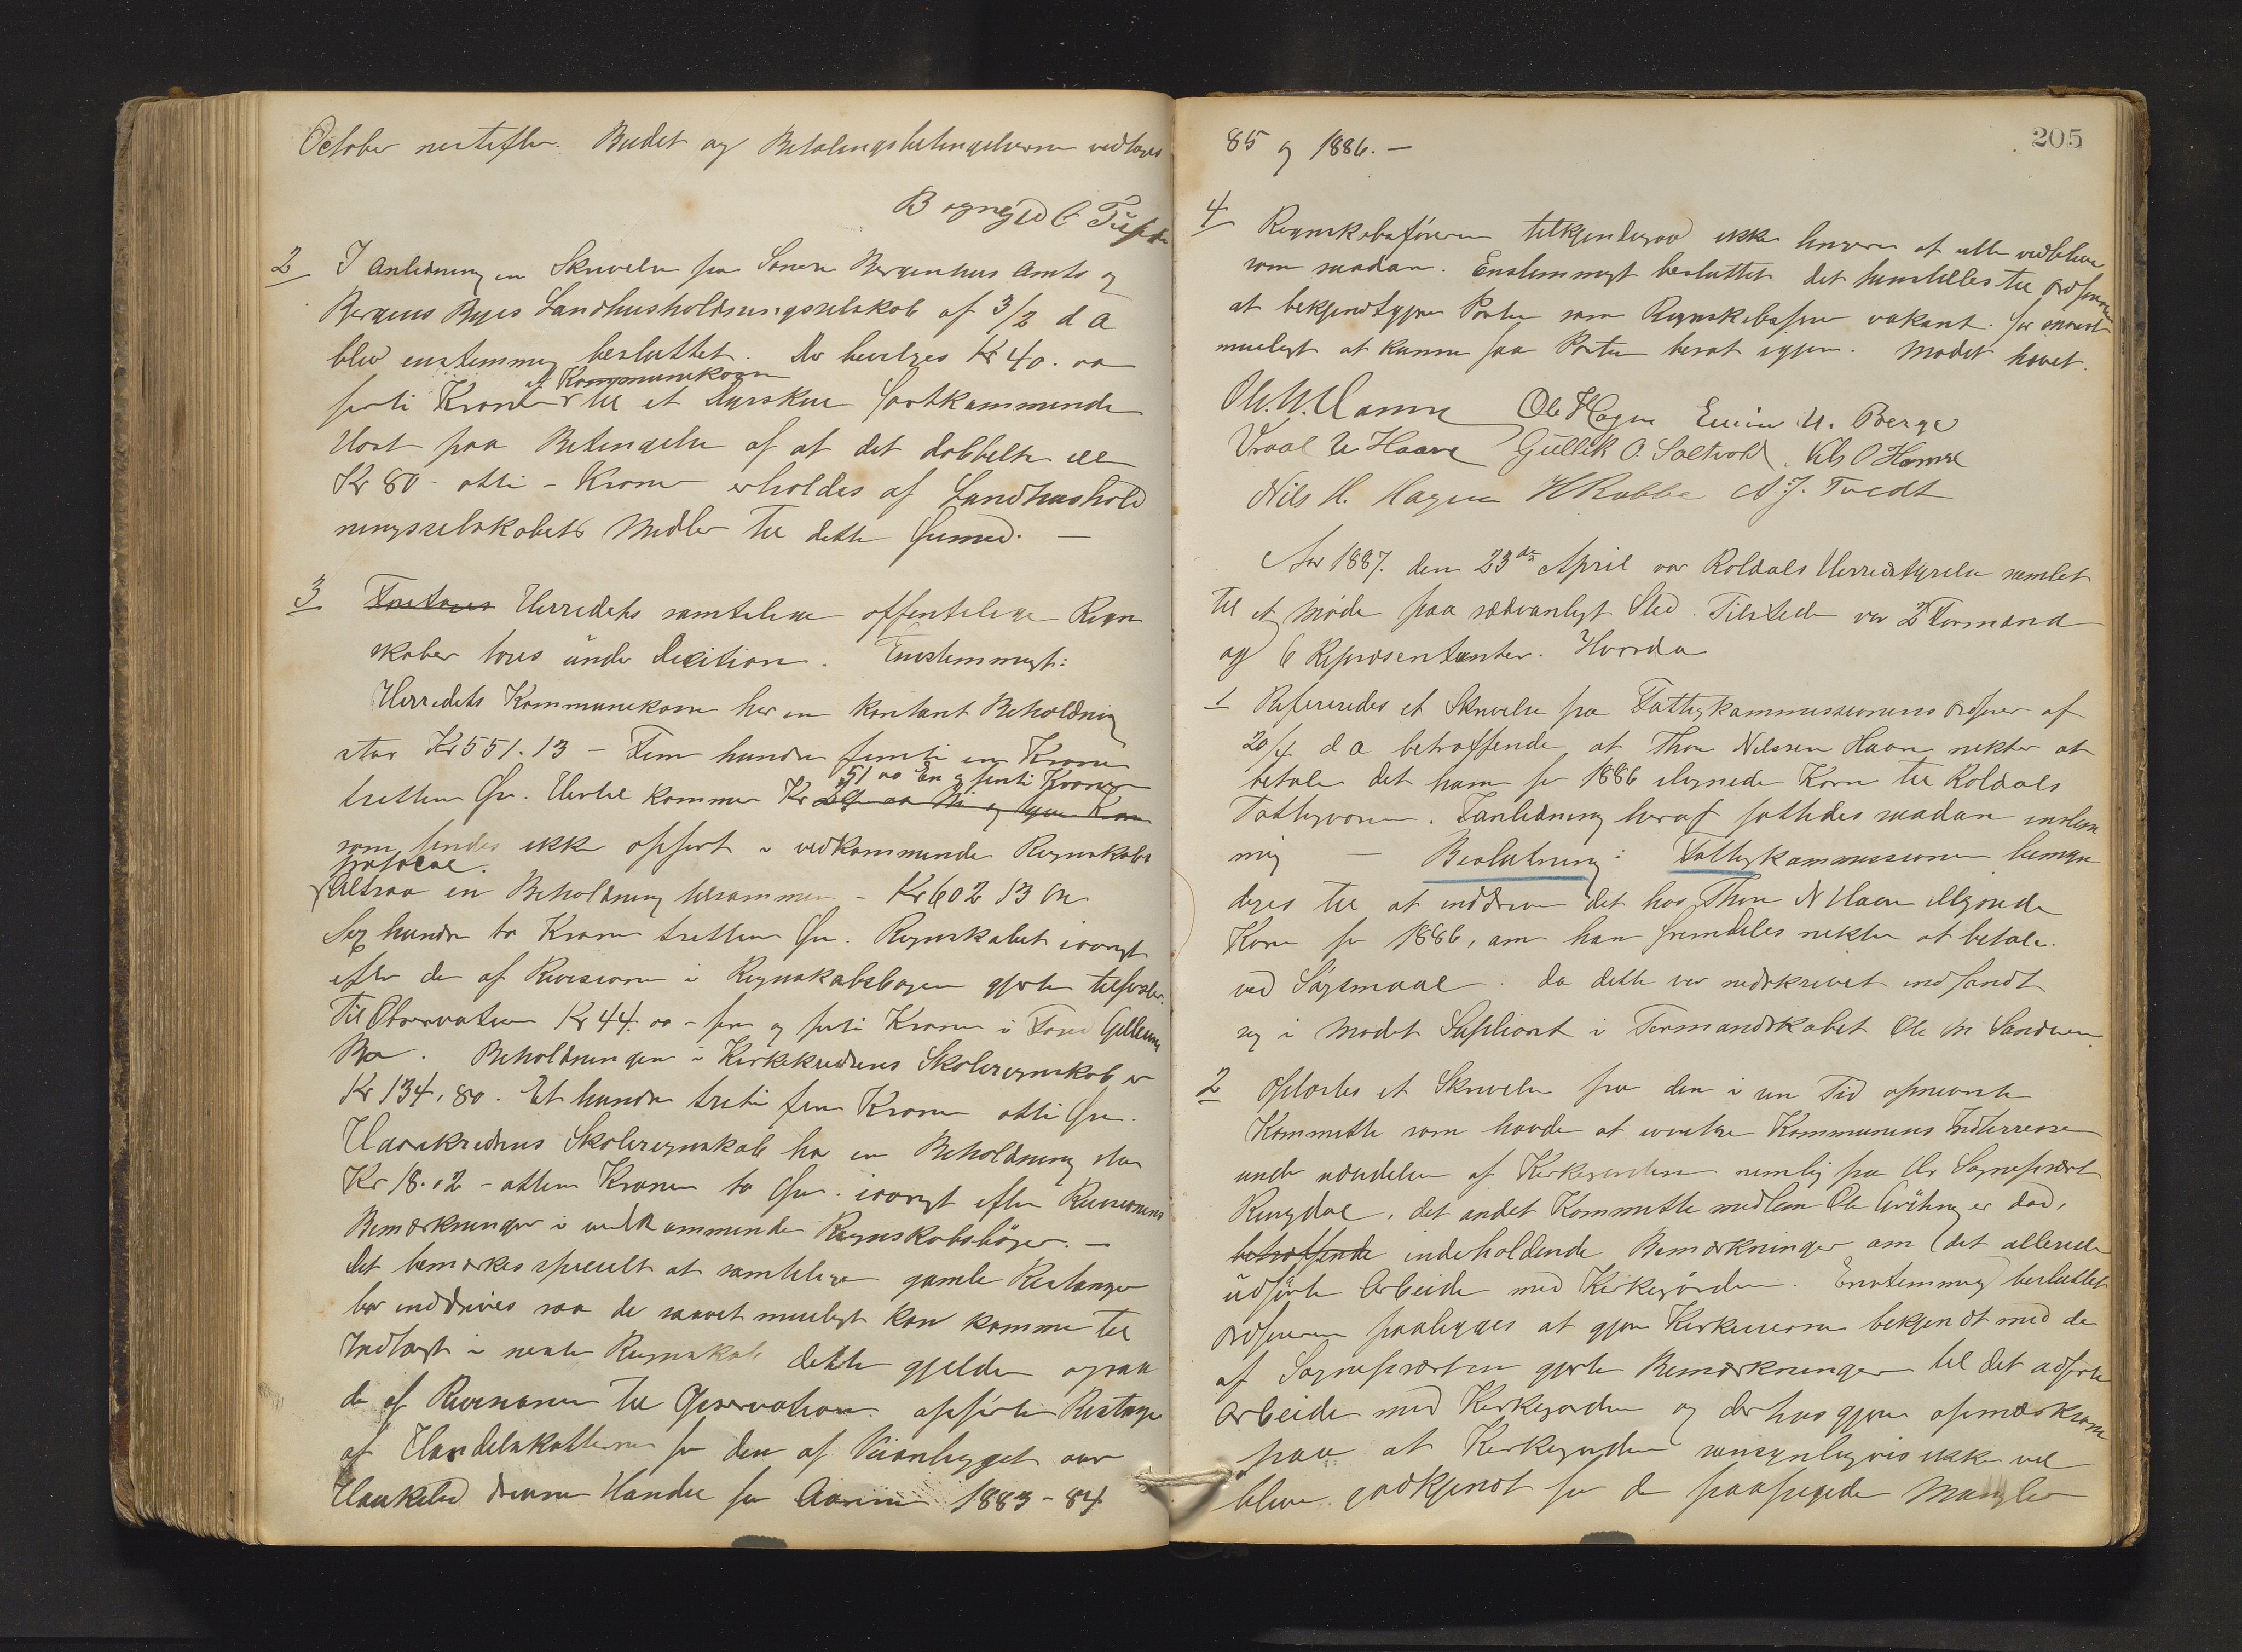 October nestefter. Budet og Betalingsbetingelserne vedtages
B ogne
2 I Anledning en Skrivelse fra Søndre Bergenhus Amts og
Bergens Byes Landhusholdningsselskab af 3/2 d a
blev enstemmig besluttet. Der bevilges Kr 40. oo
af Kommunekassen
førti Kroner til et Dyrskue forstkommende
Høst paa Betingelse af at det dobbelte
Kr 80 - otti - Kroner erholdes af Landhushold
ningsselskabets Midler til dette Øiemed. —
3 Foretoges Herredets samtelige offentelige Regn
skaber toges under Decition. Enstemmigt:
Herredets Kommunekasse har en kontant Beholdning
stor Kr 551.13 - Fem hundre femti en Krone
51 oo En og femti Kroner
tretten Øre. Hertil kommer Kr
som findes ikke opført i vedkommende Regnskabs
protocol.
Altsaa en Beholdning tilsammen - Kr 602 13 Øre
Sex hundre to Kroner tretten Øre. Regnskabet iøvrigt
efter de af Revisionen i Regnskabsbogen gjorte tilførsler.
Til Observation Kr 44. oo - fire og førti Kroner i
Beholdningen i Kirkekredsens Skoleregnskab er
Kr 134, 80. Et hundre treti fire Kroner otti Øre.
Haarekredsens Skoleregnskab har en Beholdning stor
Kr 18.02 - atten Kroner to Øre. iøvrigt efter Revisionens
Bemærkninger i vedkommende Regnskabsbøger. —
Det bemærkes specielt at samtelige gamle Restanser
bør inddrives saa de saavet mueligt kan komme til
Indtægt i neste Regnskab dette gjelder ogsaa
de af Revisionen til Observation opførte Restanse
af Handelskatterne for den af Veianlegget over
Haukelid drevne Handel for Aarene 1883-84
205
85 og 1886. —
4 Regnskabsføreren tilkjendegav ikke lengere at ville vedblive
som saadan. Enstemmigt besluttet det henstilles til Ordføreren
at bekjendtgjøre Posten som Regnskabsfører vakant. for snarest
mueligt at kunne faa Posten besat igjen. Mødet hævet.
Ole Hagen U. Berge
Vraal U Haare Gullik O. Saltvold. Nils O Hamre
Nils H. Hagen H Rabbe A J. Tvedt
Aar 1887. den 23de April var Røldals Herredstyrelse samlet
til et Møde paa sædvanligt Sted. Tilstede var 2 Formænd
og 6 Repræsentanter. Hvorda
1 Refereredes et Skrivelse fra Fattigkommissionens Ordfører af
20/4 d a betræffende at Thor Nilssen Haare nekter at
betale det ham for 1886 ilignede Korn til Røldals
Fattigvæsen. I anledning heraf fattedes saadan enstem
mig — Beslutning: Fattigkommissionen bemyn
diges til at inddrive det hos Thor N Haare ilignede
Korn for 1886, om han fremdeles nekter at betale.
ved Søgsmaal. Da dette var nedskrevet indfandt
sig i Mødet Supliant i Formandskabet Ole M Sandven.
2 Oplæstes et Skrivelse fra den i sin Tid opnævnte
Kommitte som havde at ivaretage Kommunens Indterresse
under udvidelse af Kirkegaarden nemlig fra Hr Sognepræst
Ringdal, det andet Kommitte medlem Ole er død,
betræffende indeholdende Bemærkninger om det allerede
udførte Arbeide med Kirkegården. Enstemmig besluttet
Ordføreren paalægges at gjøre Kirkeeierne bekjendt med de
af Sognepræsten gjorte Bemærkninger til det udførte
Arbeide med Kirkegaarden og derhos gjøre opmærksom
paa at Kirkegaarden sansynligvis ikke vil
blive godkjendt for de paapegede Mangler